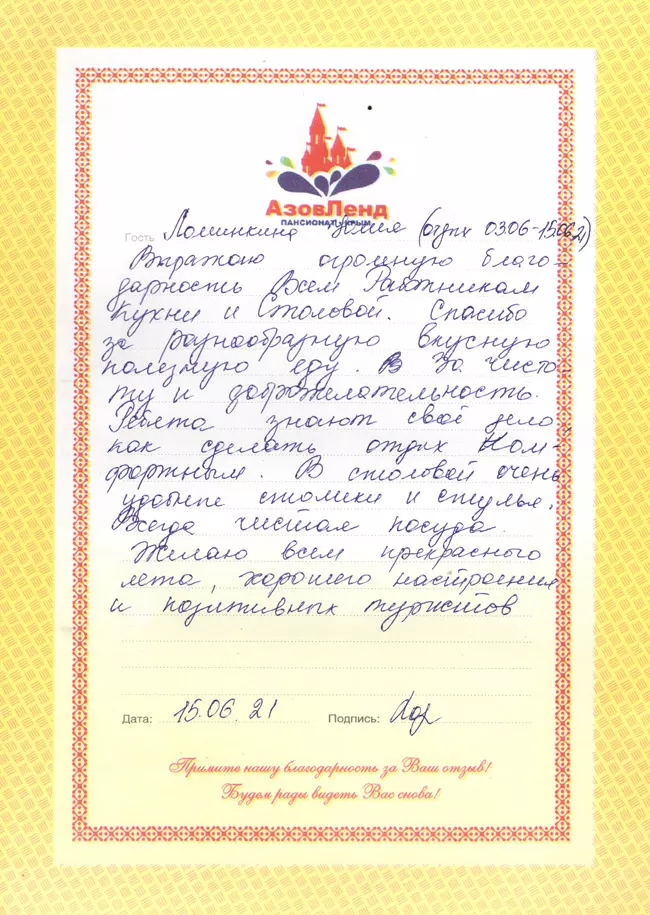 АзовЛенд
ПАНСИОНАТ · КРЫМ
Гость Ломинкина Юлия (отдых 0306-150621)
Выражаю огромную благо-
дарность Всем Работникам
Кухни и Столовой. Спасибо
за разнообразную вкусную
полезную еду. В За чисто-
ту и доброжелательность.
Ребята знают своё дело,
как сделать отдых Ком-
фортным. В столовой очень
удобные столики и стулья.
Всегда чистая посуда.
Желаю всем прекрасного
лета, хорошего настроения
и позитивных туристов
Дата: 15.06.21 Подпись:
Примите нашу благодарность за Ваш отзыв!
Будем рады видеть Вас снова!